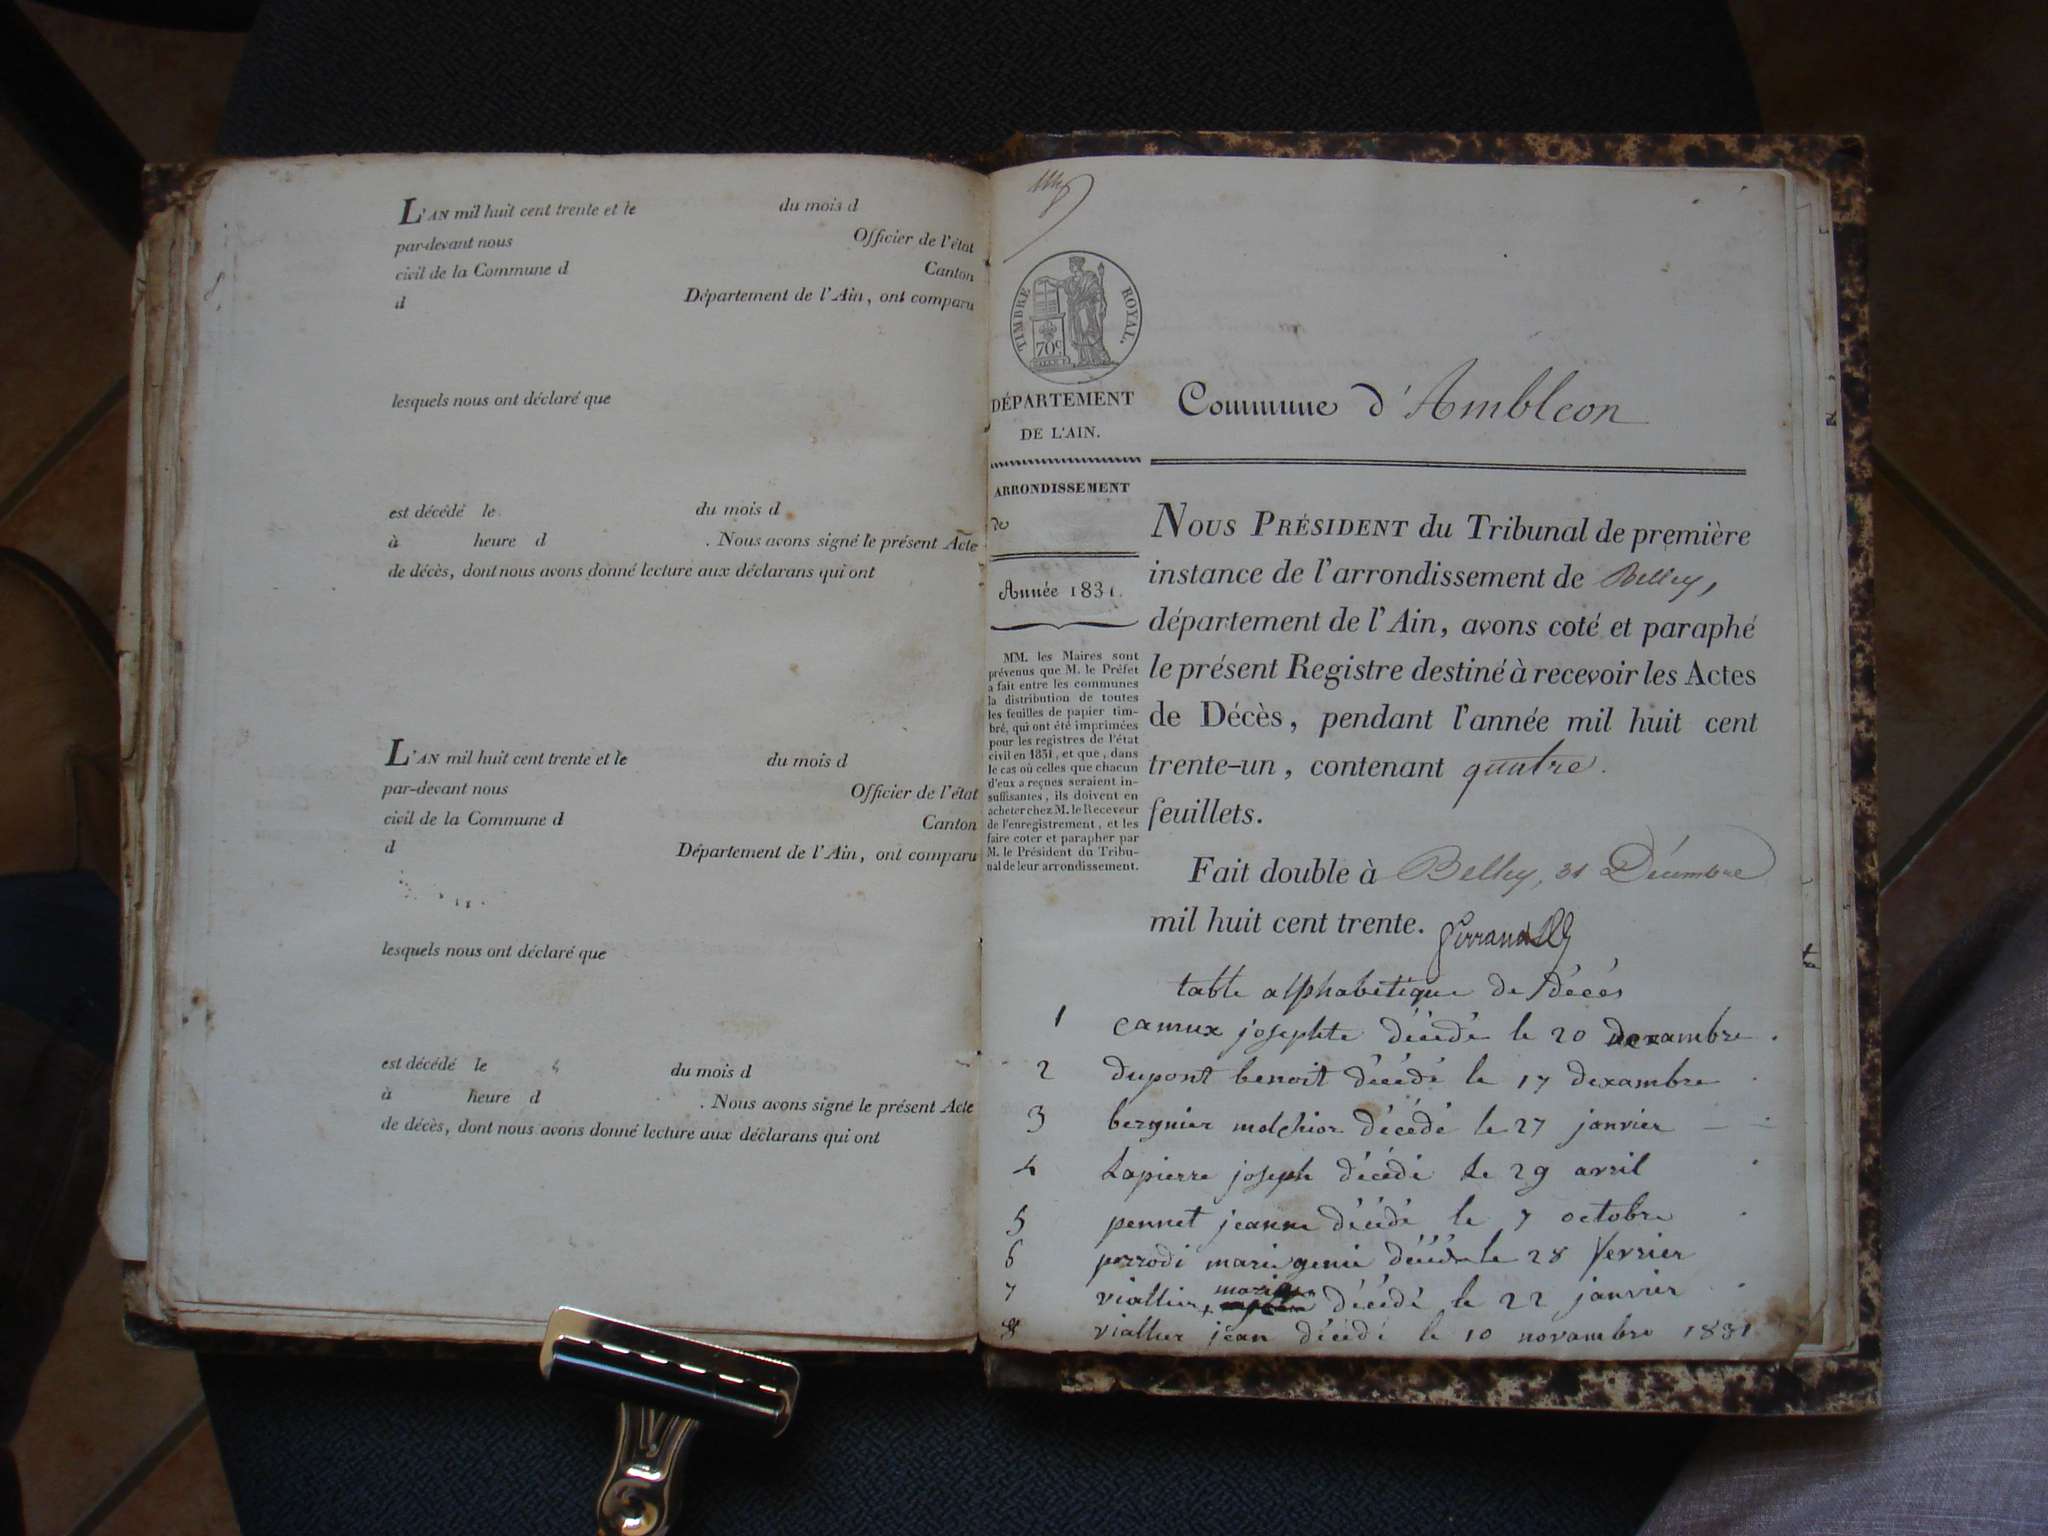 L'AN mil huit cent trente et le du mois d
par-devant nous Officier de l'état
civil de la Commune d Canton
d Département de l'Ain, ont comparu
lesquels nous ont déclaré que
est décédé le du mois d
à heure d . Nous avons signé le présent Acte
de décès, dont nous avons donné lecture aux déclarans qui ont
L'AN mil huit cent trente et le du mois d
par-devant nous Officier de l'état
civil de la Commune d Canton
d Département de l'Ain, ont comparu
lesquels nous ont déclaré que
est décédé le du mois d
à heure d . Nous avons signé le présent Acte
de décès, dont nous avons donné lecture aux déclarans qui ont
TIMBRE ROYAL.
70c
DÉPARTEMENT
DE L'AIN.
ARRONDISSEMENT
de
Année 1831.
MM. les Maires sont
prévenus que M. le Préfet
a fait entre les communes
la distribution de toutes
les feuilles de papier tim-
bré, qui ont été imprimées
pour les registres de l'état
civil en 1831, et que, dans
le cas où celles que chacun
d'eux a reçues seraient in-
suffisantes, ils doivent en
acheter chez M. le Receveur
de l'enregistrement, et les
faire coter et parapher par
M. le Président du Tribu-
nal de leur arrondissement.
Commune d'Ambleon
NOUS PRÉSIDENT du Tribunal de première
instance de l'arrondissement de Belley,
département de l'Ain, avons coté et paraphé
le présent Registre destiné à recevoir les Actes
de Décès, pendant l'année mil huit cent
trente-un, contenant quatre.
feuillets.
Fait double à Belley, 31 Décembre
mil huit cent trente.
table alphabetique de décés
1 camux josephte décédé le 20 dexambre.
2 dupont benoit décédé le 17 dexambre
3 bergnier melchior décédé le 27 janvier
4 Lapierre joseph décédé le 29 avril
5 pennet jeanne décédé le 7 octobre
6 perrodi marie genie décédé le 28 fevrier
7 viallier décédé le 22 janvier
8 viallier jean décédé le 10 novambre 1831